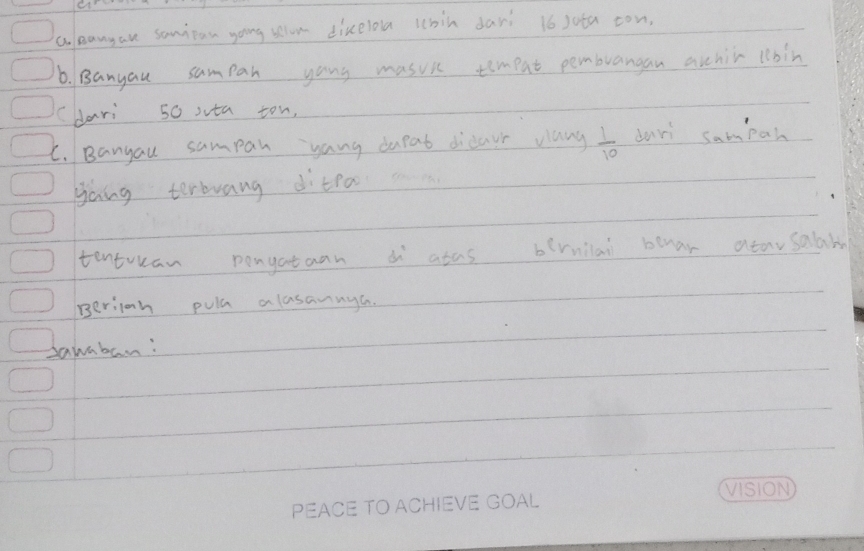 a. Banyak sampah yang belum dikelola lebih dari 16 Juta ton.
b. Banyak sampah yang masuk tempat pembuangan akhir lebih
dari 50 Juta ton.
c. Banyak sampah yang dapat didaur ulang 1/10 dari sampah
yang terbuang di tpa
tentukan penyataan di atas bernilai benar atau salah
Berilah pula alasannya.
Jawaban:
PEACE TO ACHIEVE GOAL
VISION